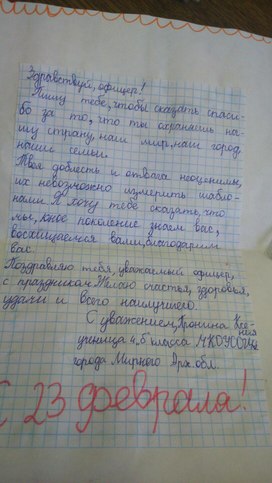 Здравствуй, офицер!
Пишу тебе, чтобы сказать спаси-
бо за то, что ты охраняешь на-
шу страну, наш мир, наш город,
наши семьи.
Твоя доблесть и отвага неоценимы,
их невозможно измерить шабло-
нами. Я хочу тебе сказать, что
мы, юное поколение знаем вас,
восхищаемся вами, благодарим
вас.
Поздравляю тебя, уважаемый офицер,
с праздником. Желаю счастья, здоровья,
удачи и всего наилучшего.
С уважением, Пронина Ксе-
ния
ученица 4,5 класса МКОУСОШ
города Мирного Арх.обл.
С 23 февраля!